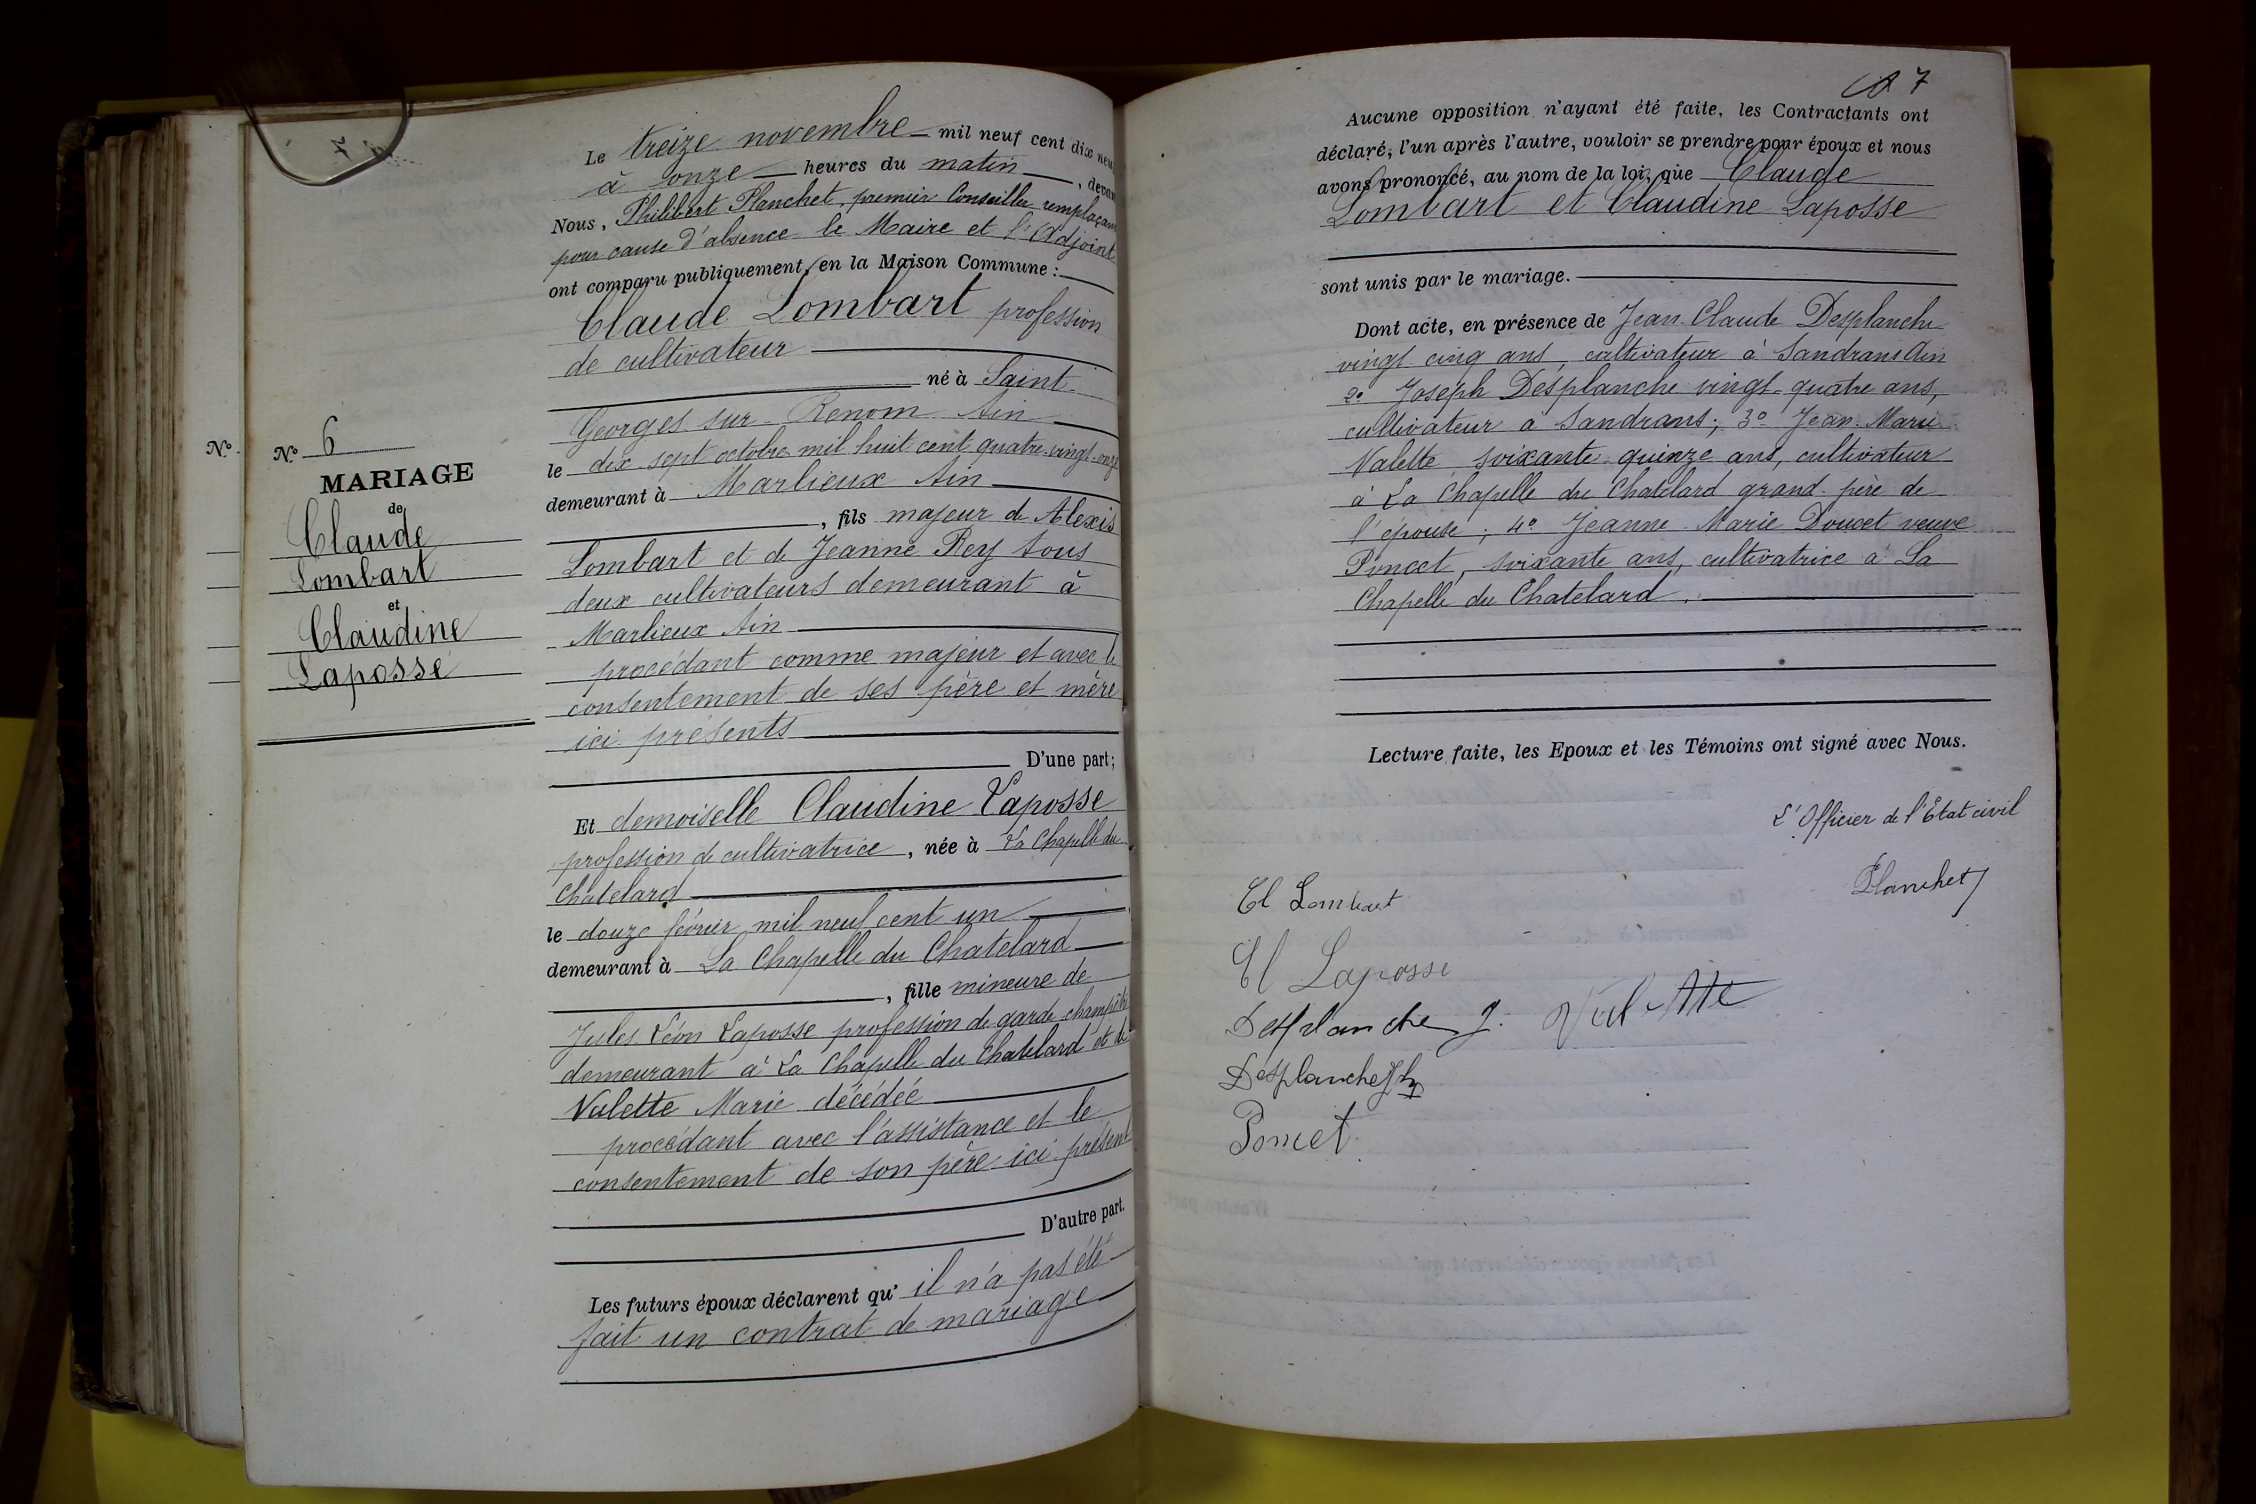 N° 6
MARIAGE
de
Claude
Lombart
et
Claudine
Laposse
N°
Le treize novembre mil neuf cent dix neu
à onze heures du matin, devan
Nous, Philibert Planchet, premier Conseiller remplaçant
pour cause d'absence le Maire et l'Adjoint
ont comparu publiquement, en la Maison Commune :
Claude Lombart profession
de cultivateur
né à Saint
Georges sur Renom Ain
le dix sept octobre mil huit cent quatre-vingt-onze
demeurant à Marlieux Ain
, fils majeur de Alexis
Lombart et de Jeanne Rey tous
deux cultivateurs demeurant à
Marlieux Ain
procédant comme majeur et avec le
consentement de ses père et mère
ici présents
D'une part;
Et demoiselle Claudine Laposse
profession de cultivatrice, née à La Chapelle du
Châtelard
le douze février mil neuf cent un
demeurant à La Chapelle du Chatelard
, fille mineure de
Jules Léon Laposse profession de garde champêtre
demeurant à La Chapelle du Chatelard et de
Valette Marie décédée
procédant avec l'assistance et le
consentement de son père ici présent
D'autre part.
Les futurs époux déclarent qu' il n'a pas été
fait un contrat de mariage
7
Aucune opposition n'ayant été faite, les Contractants ont
déclaré, l'un après l'autre, vouloir se prendre pour époux et nous
avons prononcé, au nom de la loi, que Claude
Lombart et Claudine Laposse
sont unis par le mariage.
Dont acte, en présence de Jean Claude Desplanche
vingt cinq ans, cultivateur à Sandrans Ain
2° Joseph Desplanche vingt-quatre ans,
cultivateur à Sandrans; 3° Jean Marie
Valette soixante quinze ans, cultivateur
à La Chapelle du Chatelard grand-père de
l'épouse; 4° Jeanne Marie Doucet veuve
Poncet, soixante ans, cultivatrice à La
Chapelle du Chatelard.
Lecture faite, les Epoux et les Témoins ont signé avec Nous.
L'Officier de l'Etat civil
Planchet
Cl Lombart
Cl Laposse
Desplanche J. Valette
Desplanche Jh
Poncet